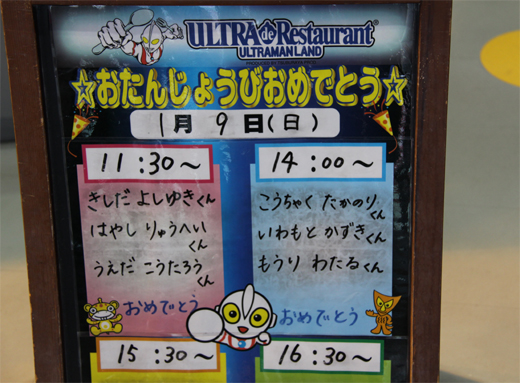 ULTRA de Restaurant
ULTRAMAN LAND
☆おたんじょうびおめでとう☆
1月 9日(日)
11:30～
きしだ よしゆきくん
はやし りゅうへいくん
うえだ こうたろうくん
おめでとう
14:00～
こうちゃく たかのりくん
いわもと かずきくん
もうり わたるくん
おめでとう
15:30～
16:30～